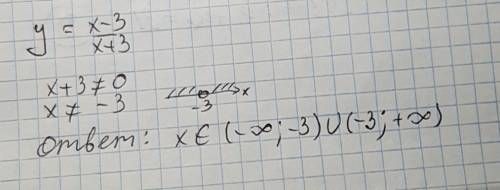 y = x-3/x+3
x+3≠0
x≠ -3
-3 x
ответ: x∈ (-∞; -3)∪(-3; +∞)